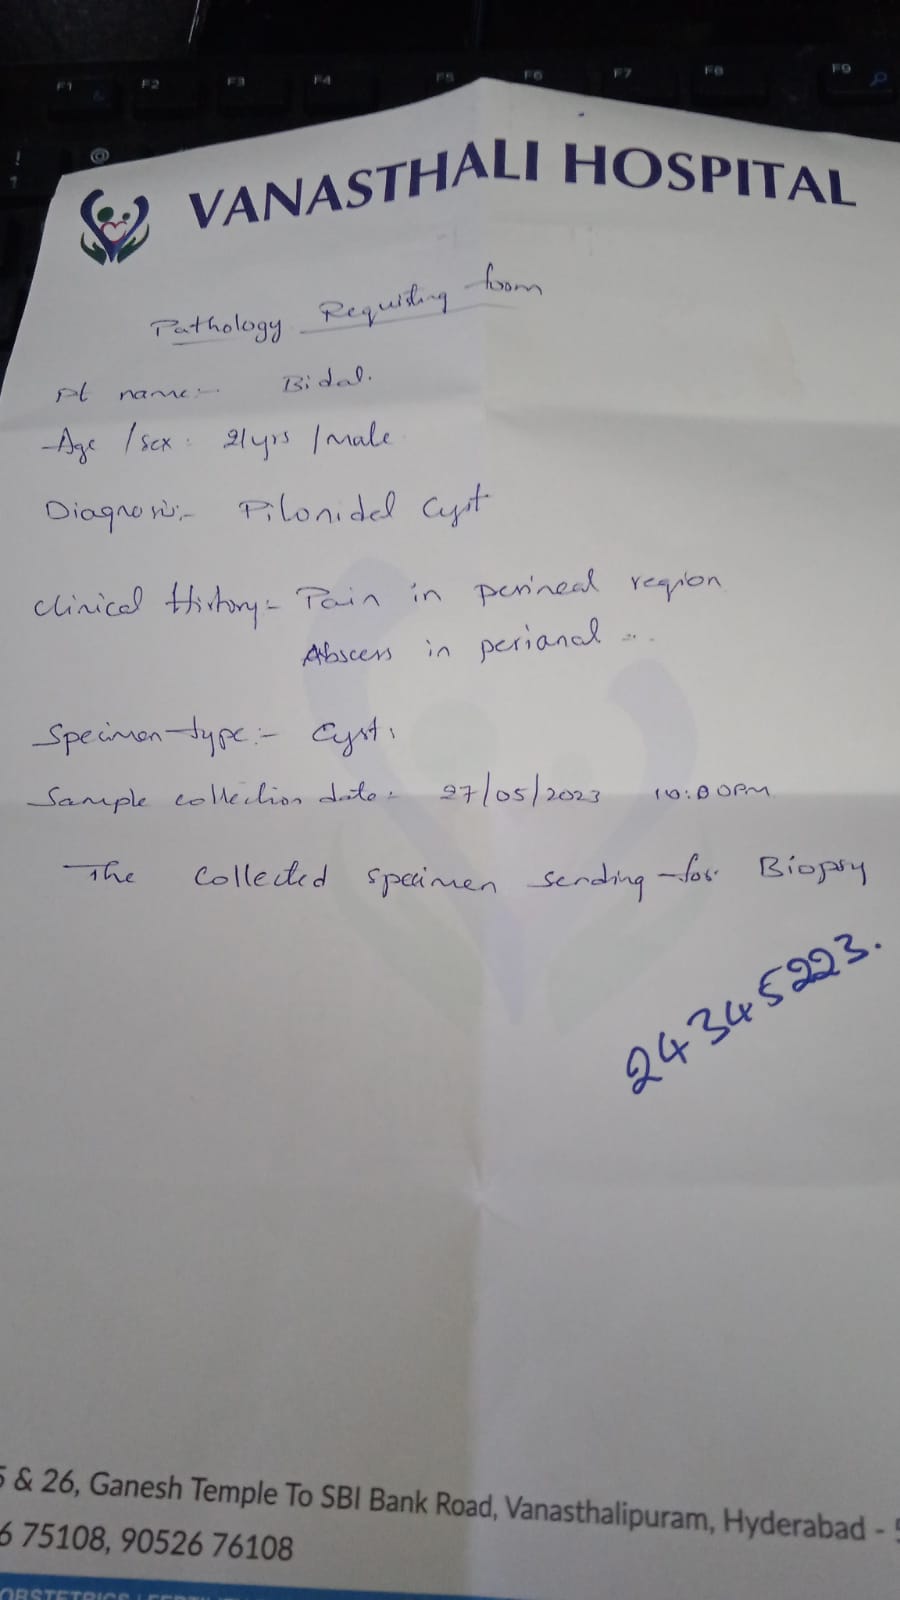 F1 F2 F3 F4 F5 F6 F7 F8 F9
! 1 @
VANASTHALI HOSPITAL
Pathology Requisting form
Pt name:- Bidal.
Age / sex : 21yrs / male
Diagnosis:- Pilonidel Cyst
Clinical History:- Pain in perineal region
Abscess in perianal
Specimen type:- Cyst.
Sample collection date:- 27/05/2023 10:00PM
The collected specimen sending for Biopsy
24345223.
5 & 26, Ganesh Temple To SBI Bank Road, Vanasthalipuram, Hyderabad - 5
6 75108, 90526 76108
OBSTETRICS |